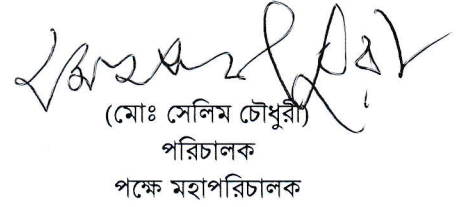 (মোঃ সেলিম চৌধুরী)
পরিচালক
পক্ষে মহাপরিচালক